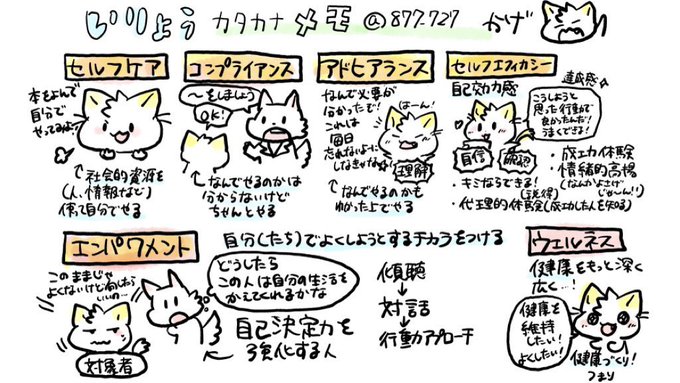 いりょう カタカナ メモ @877.727 かげ
セルフケア
本をよんで
自分で
やってみよう
社会的資源を
(人、情報など)
使って自分でやる
コンプライアンス
〜をしましょう
OK!
なんでやるのかは
分からないけど
ちゃんとやる
アドヒアランス
なんで必要が
分かったで!
これは
毎日
忘れないように
しなきゃな
はーん!
理解
なんでやるのかも
わかった上でやる
セルフエフィカシー
自己効力感
達成感
こうしようと
思った行動で
良かったんだ!
うまくできる!
自信
確認
・成功体験
・情緒的高揚
(なんかよさげ
じゃーん!!)
・キミならできる!(説得)
・代理的体験(成功した人を知る)
エンパワメント
自分(たち)でよくしようとするチカラをつける
このままじゃ
よくないけど何したら
いいの…
対象者
どうしたら
この人は自分の生活を
かえてくれるかな
自己決定力を
強化する人
傾聴
対話
行動アプローチ
ウェルネス
健康をもっと深く
広く…!
健康を
維持
したい!
よくしたい!
健康づくり!
つまり